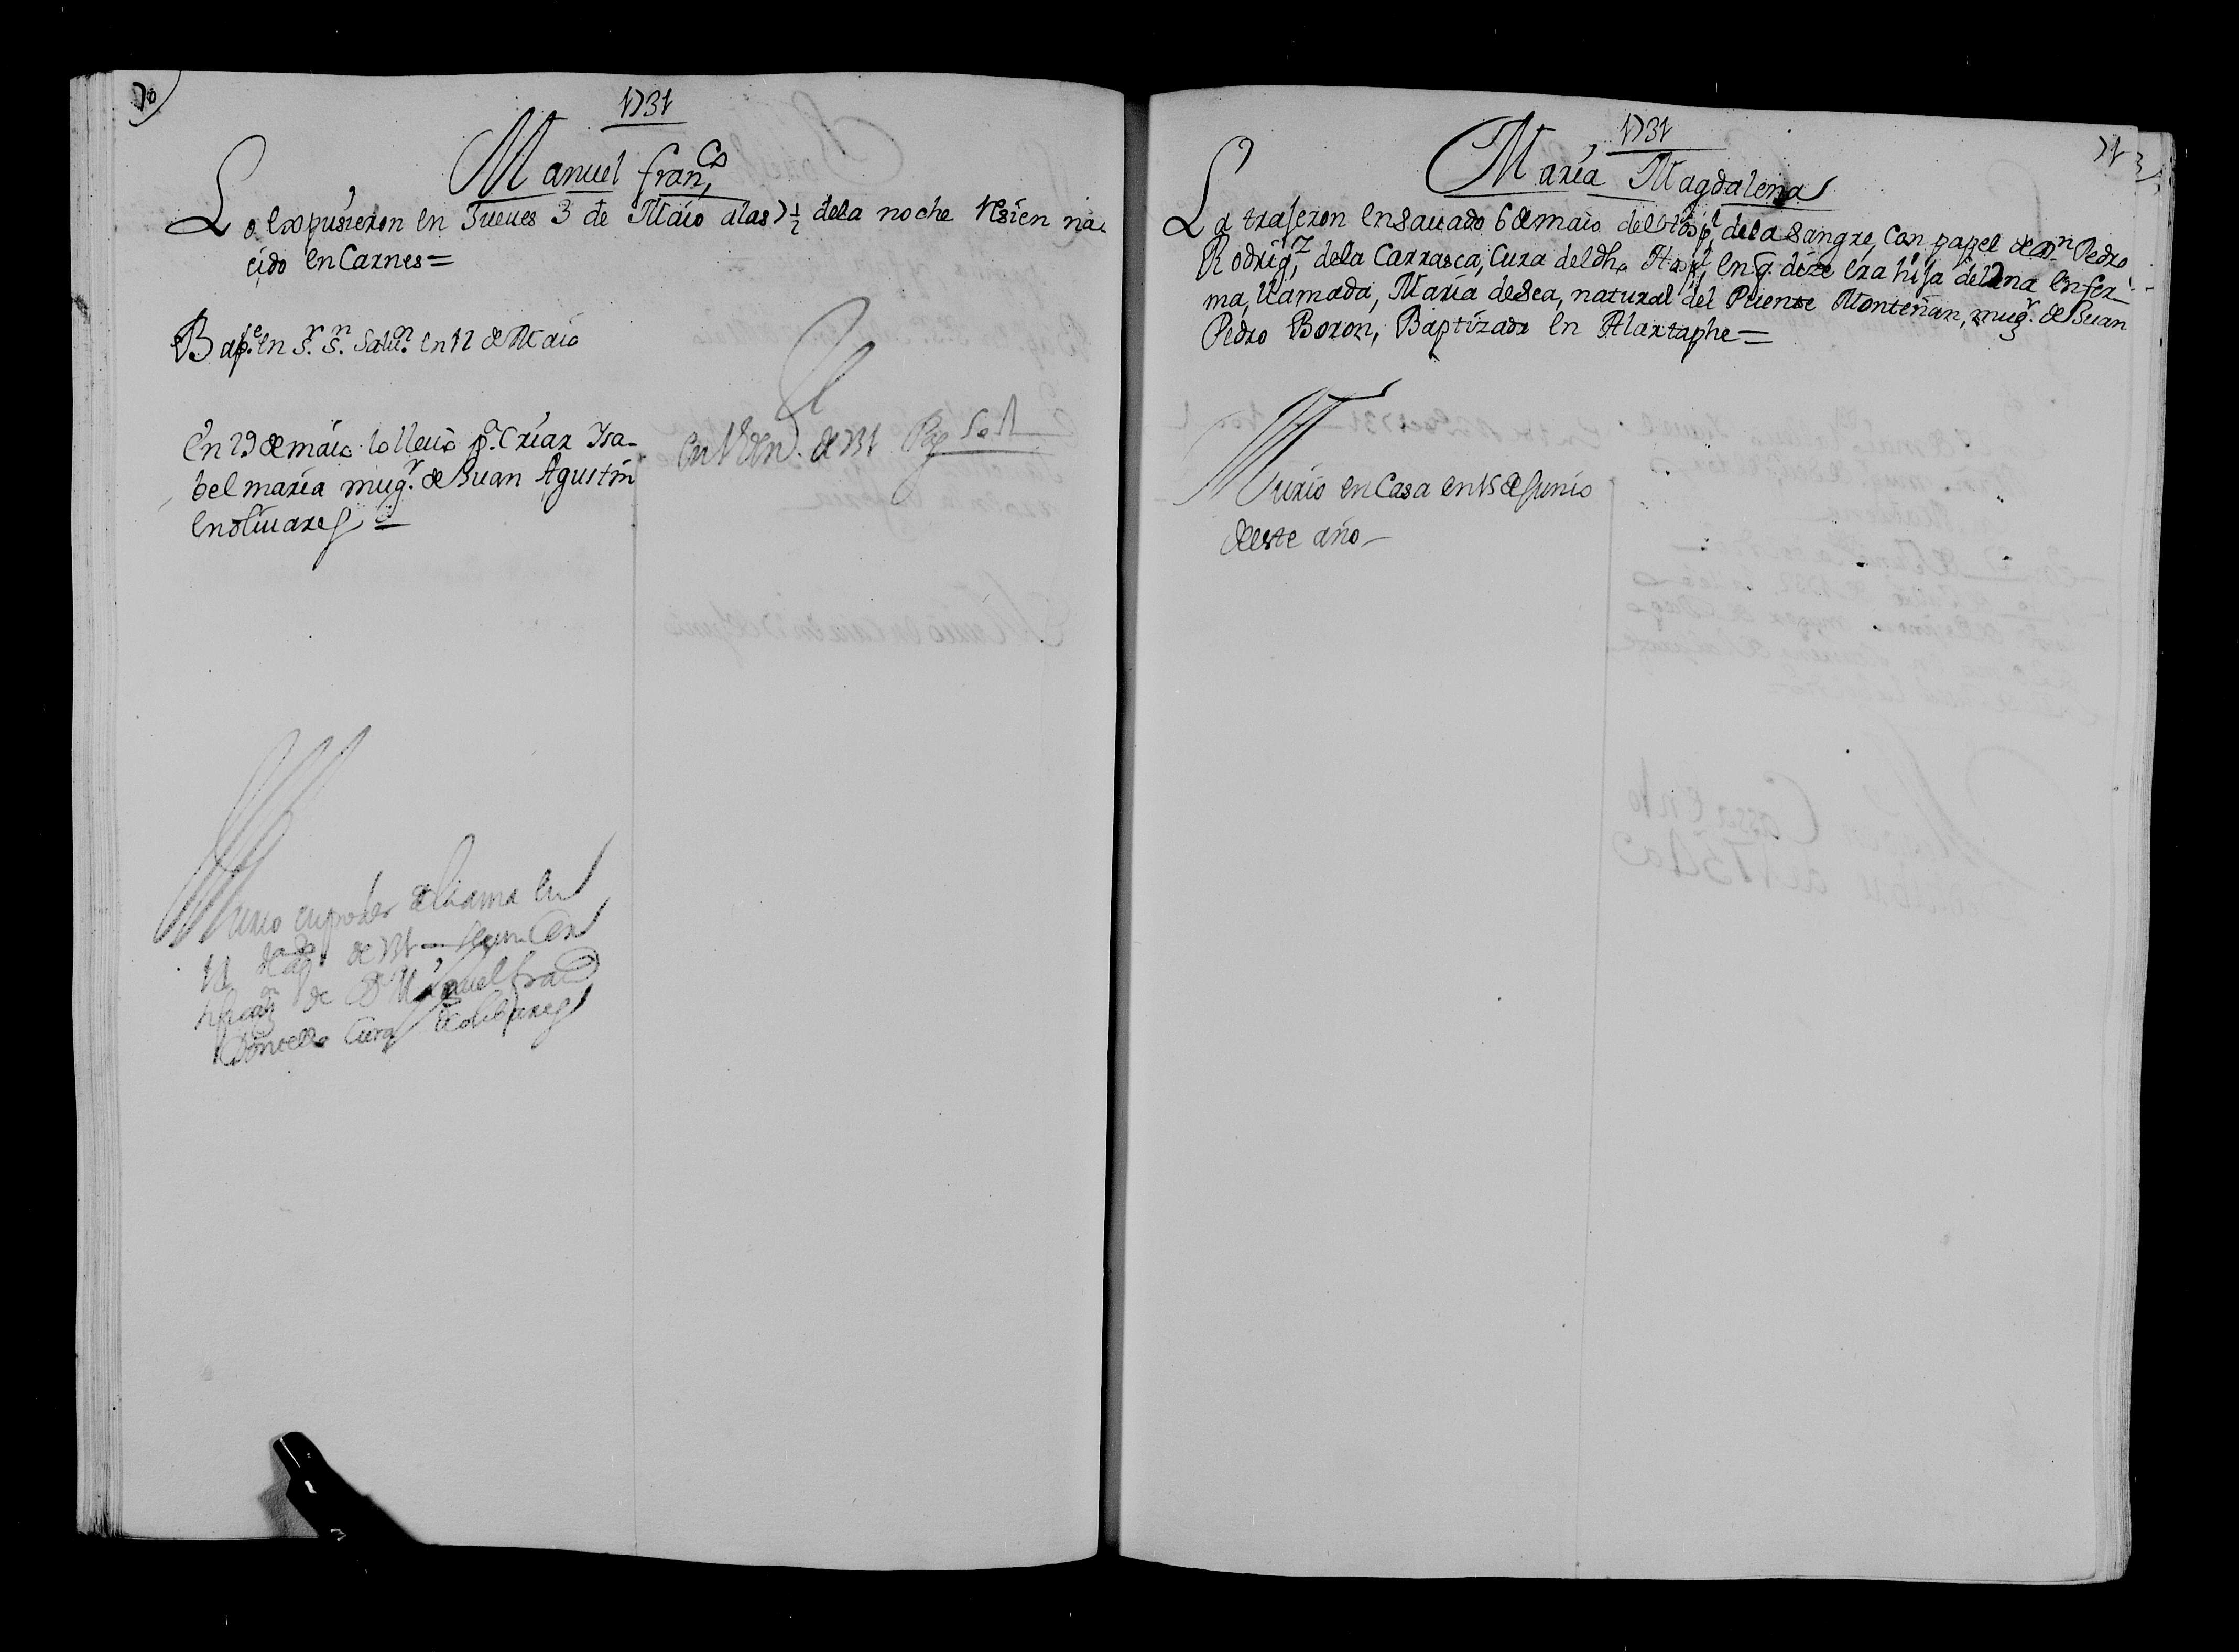 70
1731
Manuel franco
Lo expusieron en Jueues 3 de Maio alas 7 1/2 dela noche Resien na-
cido en Carnes=
Bape. en Sr. Sn. Salur. en 12 de Maio
En 29 de maio lo lleuo pa. Criar Ysa-
bel maria mugr. de Juan Agustin
en oliuares
en de 731 Pag
Murio en poder del ama en
de ago. de 731
de Dn. Manuel
Cura de olibares
1731
71
Maria Magdalena
La trajeron en Sauado 6 de maio del Hospl. dela Sangre, Con papel de Dn. Pedro
Rodrigz. dela Carrasca, Cura del dho Hospl. en q. dize era hija de Una enfer-
ma, llamada, Maria desea, natural del Puente Monteñan, mugr. de Juan
Pedro Boron, Baptizada en Alaxtaphe=
Murio en Casa en 15 de Junio
de este año-